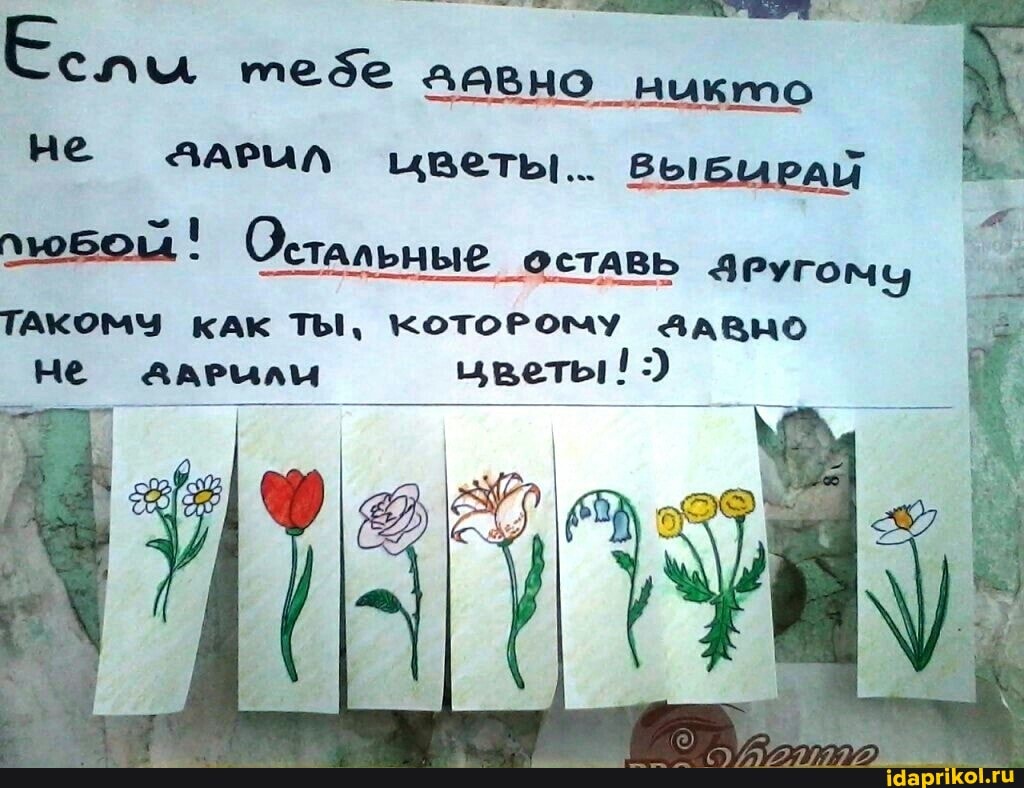 Если тебе давно никто
не дарил цветы... выбирай
любой! Остальные оставь другому
такому как ты, которому давно
не дарили цветы! :)
81
PRO Зрение
idaprikol.ru